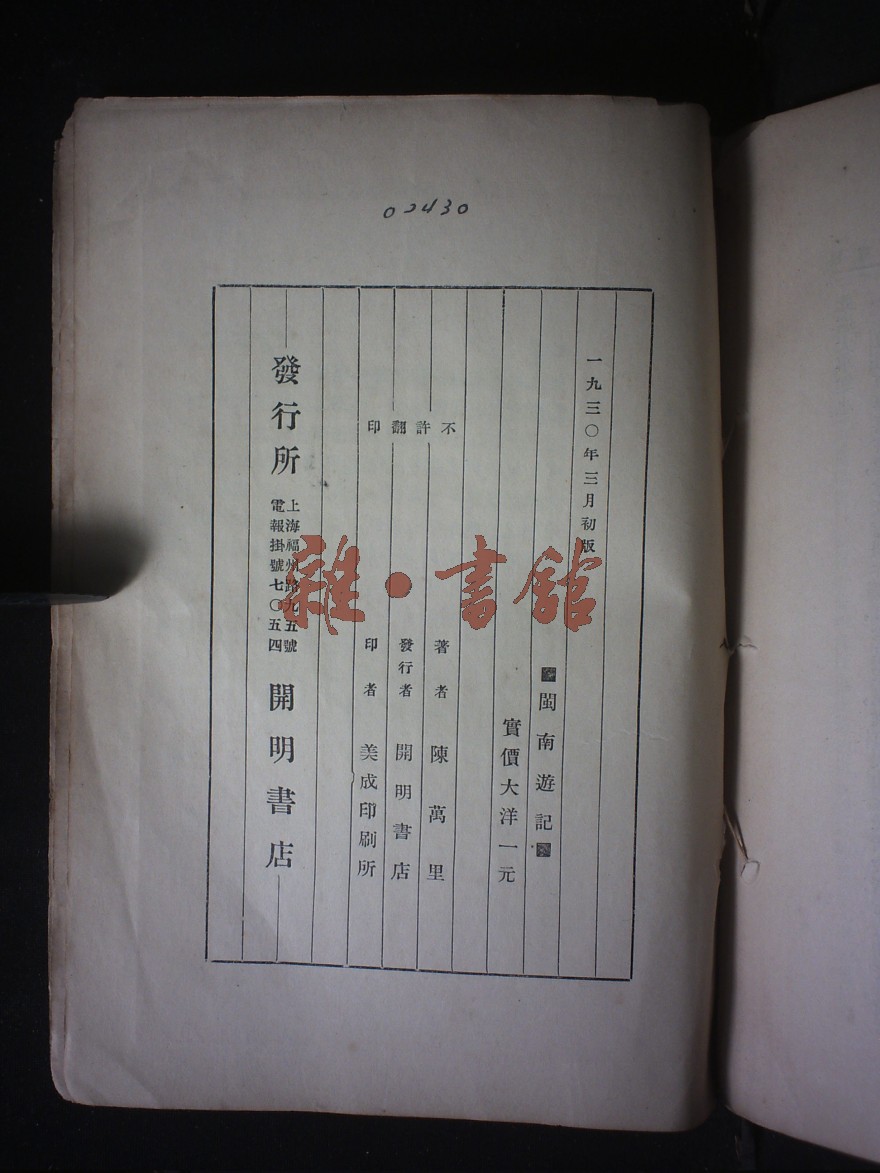 02430
一九三〇年三月初版
閩南遊記
實價大洋一元
不許翻印
著者 陳萬里
發行者 開明書店
印者 美成印刷所
發行所 上海福州路九五號 電報掛號七〇五四 開明書店
雜·書館